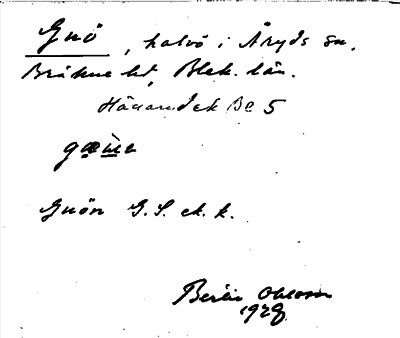 Gnö, halvö i Åryds sn.
Bräkne hd, Blek. län.
Häradsek Be 5
Gnön G.S. ek. k.
Bertil Ohlsson
1929